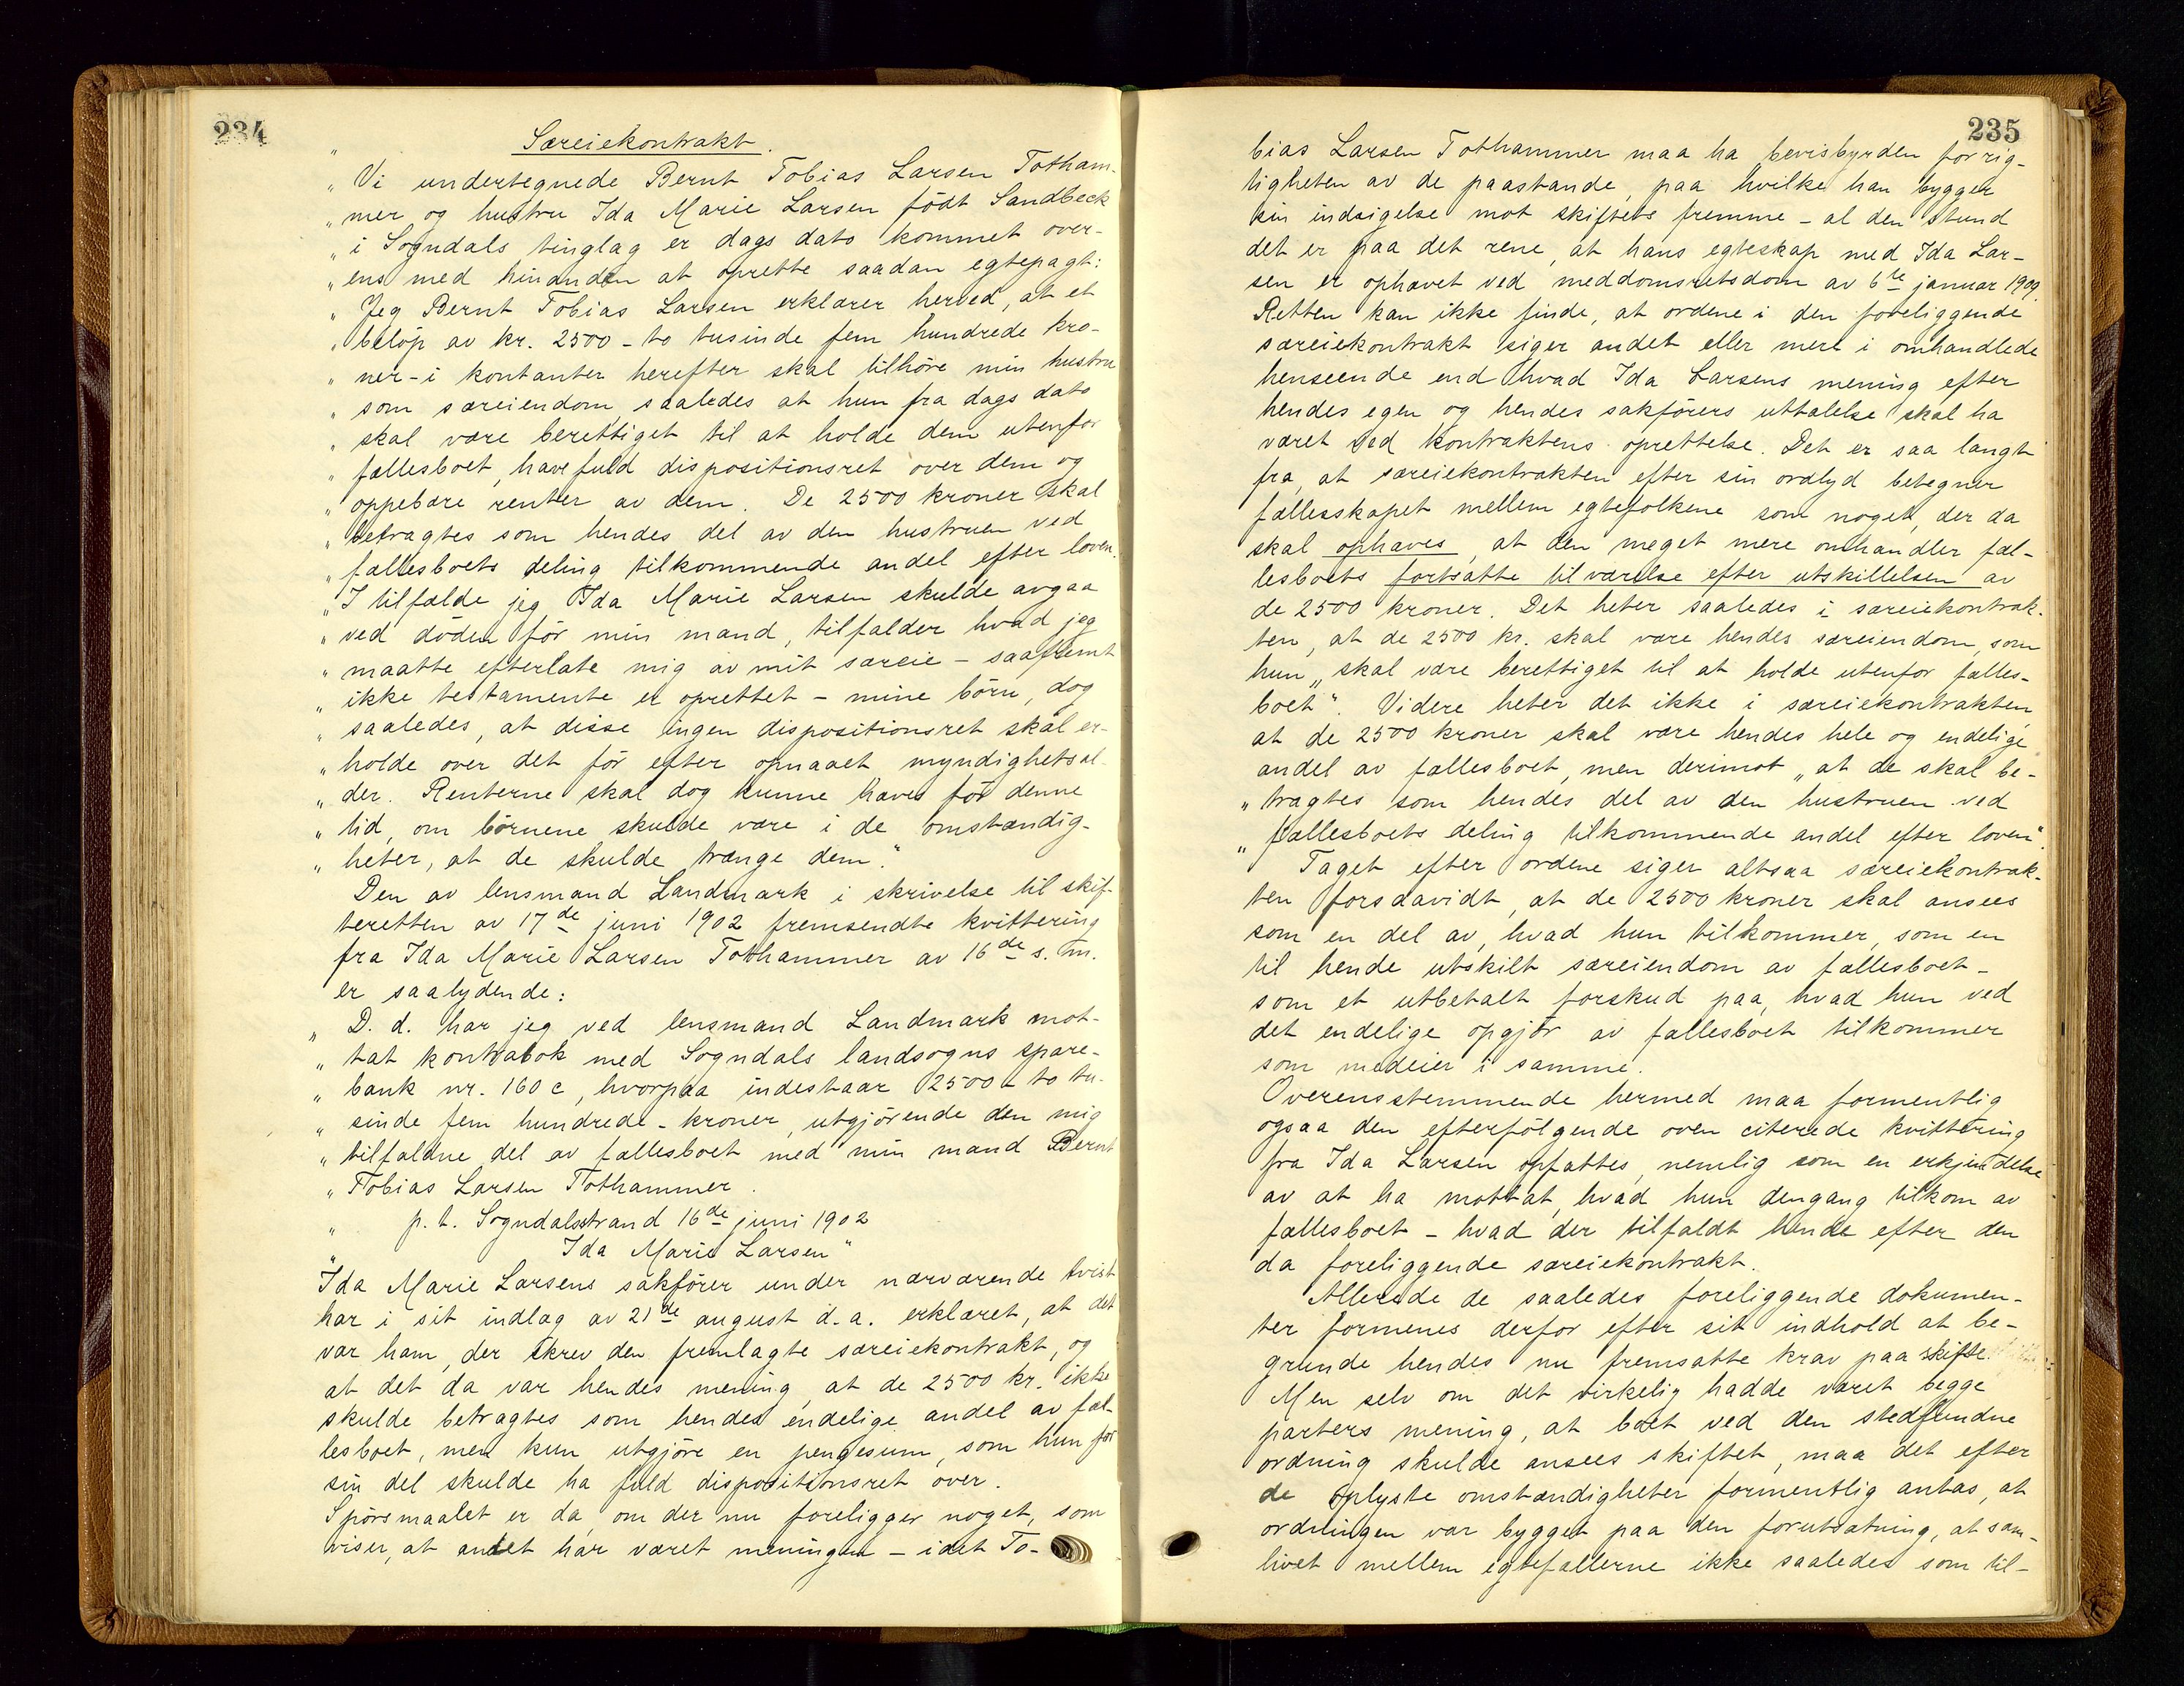 234
" Særeiekontrakt.
" Vi undertegnede Bernt Tobias Larsen Totham-
" mer og hustru Ida Marie Larsen födt Sandbeck
" i Sogndals tinglag er dags dato kommet over-
" ens med hinanden at oprette saadan egtepagt:
" Jeg Bernt Tobias Larsen erklærer herved, at et
" belöp av kr. 2500 - to tusinde fem hundrede kro-
" ner - i kontanter herefter skal tilhöre min hustru
" som særeiendom, saaledes at hun fra dags dato
" skal være berettiget til at holde dem utenfor
" fællesboet, have fuld dispositionsret over dem og
" oppebære renter av dem. De 2500 kroner skal
" betragtes som hendes del av den hustruen ved
" fællesboets deling tilkommende andel efter loven.
" I tilfælde jeg Ida Marie Larsen skulde avgaa
" ved döden för min mand, tilfalder hvad jeg
" maatte efterlate mig av mit særeie - saafremt
" ikke testamente er oprettet - mine börn, dog
" saaledes, at disse ingen dispositionsret skal er-
" holde over det för efter opnaaet myndighetsal-
" der. Renterne skal dog kunne hæves för denne
" tid, om börnene skulde være i de omstændig-
" heter, at de skulde trænge dem."
Den av lensmand Landmark i skrivelse til skif-
teretten av 17de juni 1902 fremsendte kvittering
fra Ida Marie Larsen Tothammer av 16de s. m.
er saalydende:
" D. d. har jeg ved lensmand Landmark mot-
" tat kontrabok med Sogndals landsogns spare-
" bank nr. 160 c, hvorpaa indestaar 2500 - to tu-
" sinde fem hundrede - kroner, utgjörende den mig
" tilfaldne del av fællesboet med min mand Bernt
" Tobias Larsen Tothammer.
" p. t. Sogndalsstrand 16de juni 1902
" Ida Marie Larsen"
Ida Marie Larsens sakförer under nærværende tvist
har i sit indlæg av 21de august d. a. erklæret, at det
var ham, der skrev den fremlagte særeiekontrakt, og
at det da var hendes mening, at de 2500 kr. ikke
skulde betragtes som hendes endelige andel av fæl-
lesboet, men kun utgjöre en pengesum, som hun for
sin del skulde ha fuld dispositionsret over.
Spörsmaalet er da, om der nu foreligger noget, som
viser, at andet har været meningen - idet To-
235
bias Larsen Tothammer maa ha bevisbyrden for rig-
tigheten av de paastande, paa hvilke han bygger
sin indsigelse mot skiftets fremme - al den stund
det er paa det rene, at hans egteskap med Ida Lar-
sen er ophævet ved meddomsretsdom av 6te januar 1909.
Retten kan ikke finde, at ordene i den foreliggende
særeiekontrakt siger andet eller mere i omhandlede
henseende end hvad Ida Larsens mening efter
hendes egen og hendes sakförers uttalelse skal ha
været ved kontraktens oprettelse. Det er saa langt
fra, at særeiekontrakten efter sin ordlyd betegner
fællesskapet mellem egtefolkene som noget, der da
skal ophæves, at den meget mere omhandler fæl-
lesboets fortsatte tilværelse efter utskillelsen av
de 2500 kroner. Det heter saaledes i særeiekontrak-
ten, at de 2500 kr. skal være hendes særeiendom, som
hun „skal være berettiget til at holde utenfor fælles-
boet". Videre heter det ikke i særeiekontrakten,
at de 2500 kroner skal være hendes hele og endelige
andel av fællesboet, men derimot „at de skal be-
" tragtes som hendes del av den hustruen ved
" fællesboets deling tilkommende andel efter loven".
Taget efter ordene siger altsaa særeiekontrak-
ten forsaavidt, at de 2500 kroner skal ansees
som en del av, hvad hun tilkommer, som en
til hende utskilt særeiendom av fællesboet -
som et utbetalt forskud paa, hvad hun ved
det endelige opgjör av fællesboet tilkommer
som medeier i samme.
Overensstemmende hermed maa formentlig
ogsaa den efterfölgende oven citerede kvittering
fra Ida Larsen opfattes, nemlig som en erkjendelse
av at ha mottat, hvad hun dengang tilkom av
fællesboet - hvad der tilfaldt hende efter den
da foreliggende særeiekontrakt.
Allerede de saaledes foreliggende dokumen-
ter formenes derfor efter sit indhold at be-
grunde hendes nu fremsatte krav paa skifte.
Men selv om det virkelig hadde været begge
parters mening, at boet ved den stedfundne
ordning skulde ansees skiftet, maa det efter
de oplyste omstændigheter formentlig antas, at
ordningen var bygget paa den forutsætning, at sam-
livet mellem egtefællerne ikke saaledes som til-